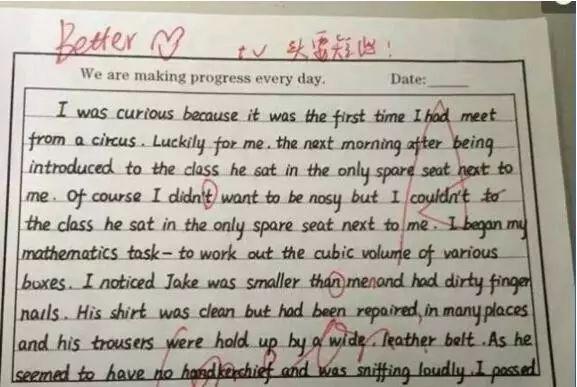 Better
t v 头要短些！
We are making progress every day. Date:
I was curious because it was the first time I had meet
from a circus. Luckily for me. the next morning after being
introduced to the class he sat in the only spare seat next to
me. Of course I didn't want to be nosy but I couldn't to
the class he sat in the only spare seat next to me. I began my
mathematics task - to work out the cubic volume of various
boxes. I noticed Jake was smaller than menand had dirty finger
nails. His shirt was clean but had been repaired, in many places
and his trousers were hold up by a wide, leather belt. As he
seemed to have no handkerchief and was sniffing loudly. I passed